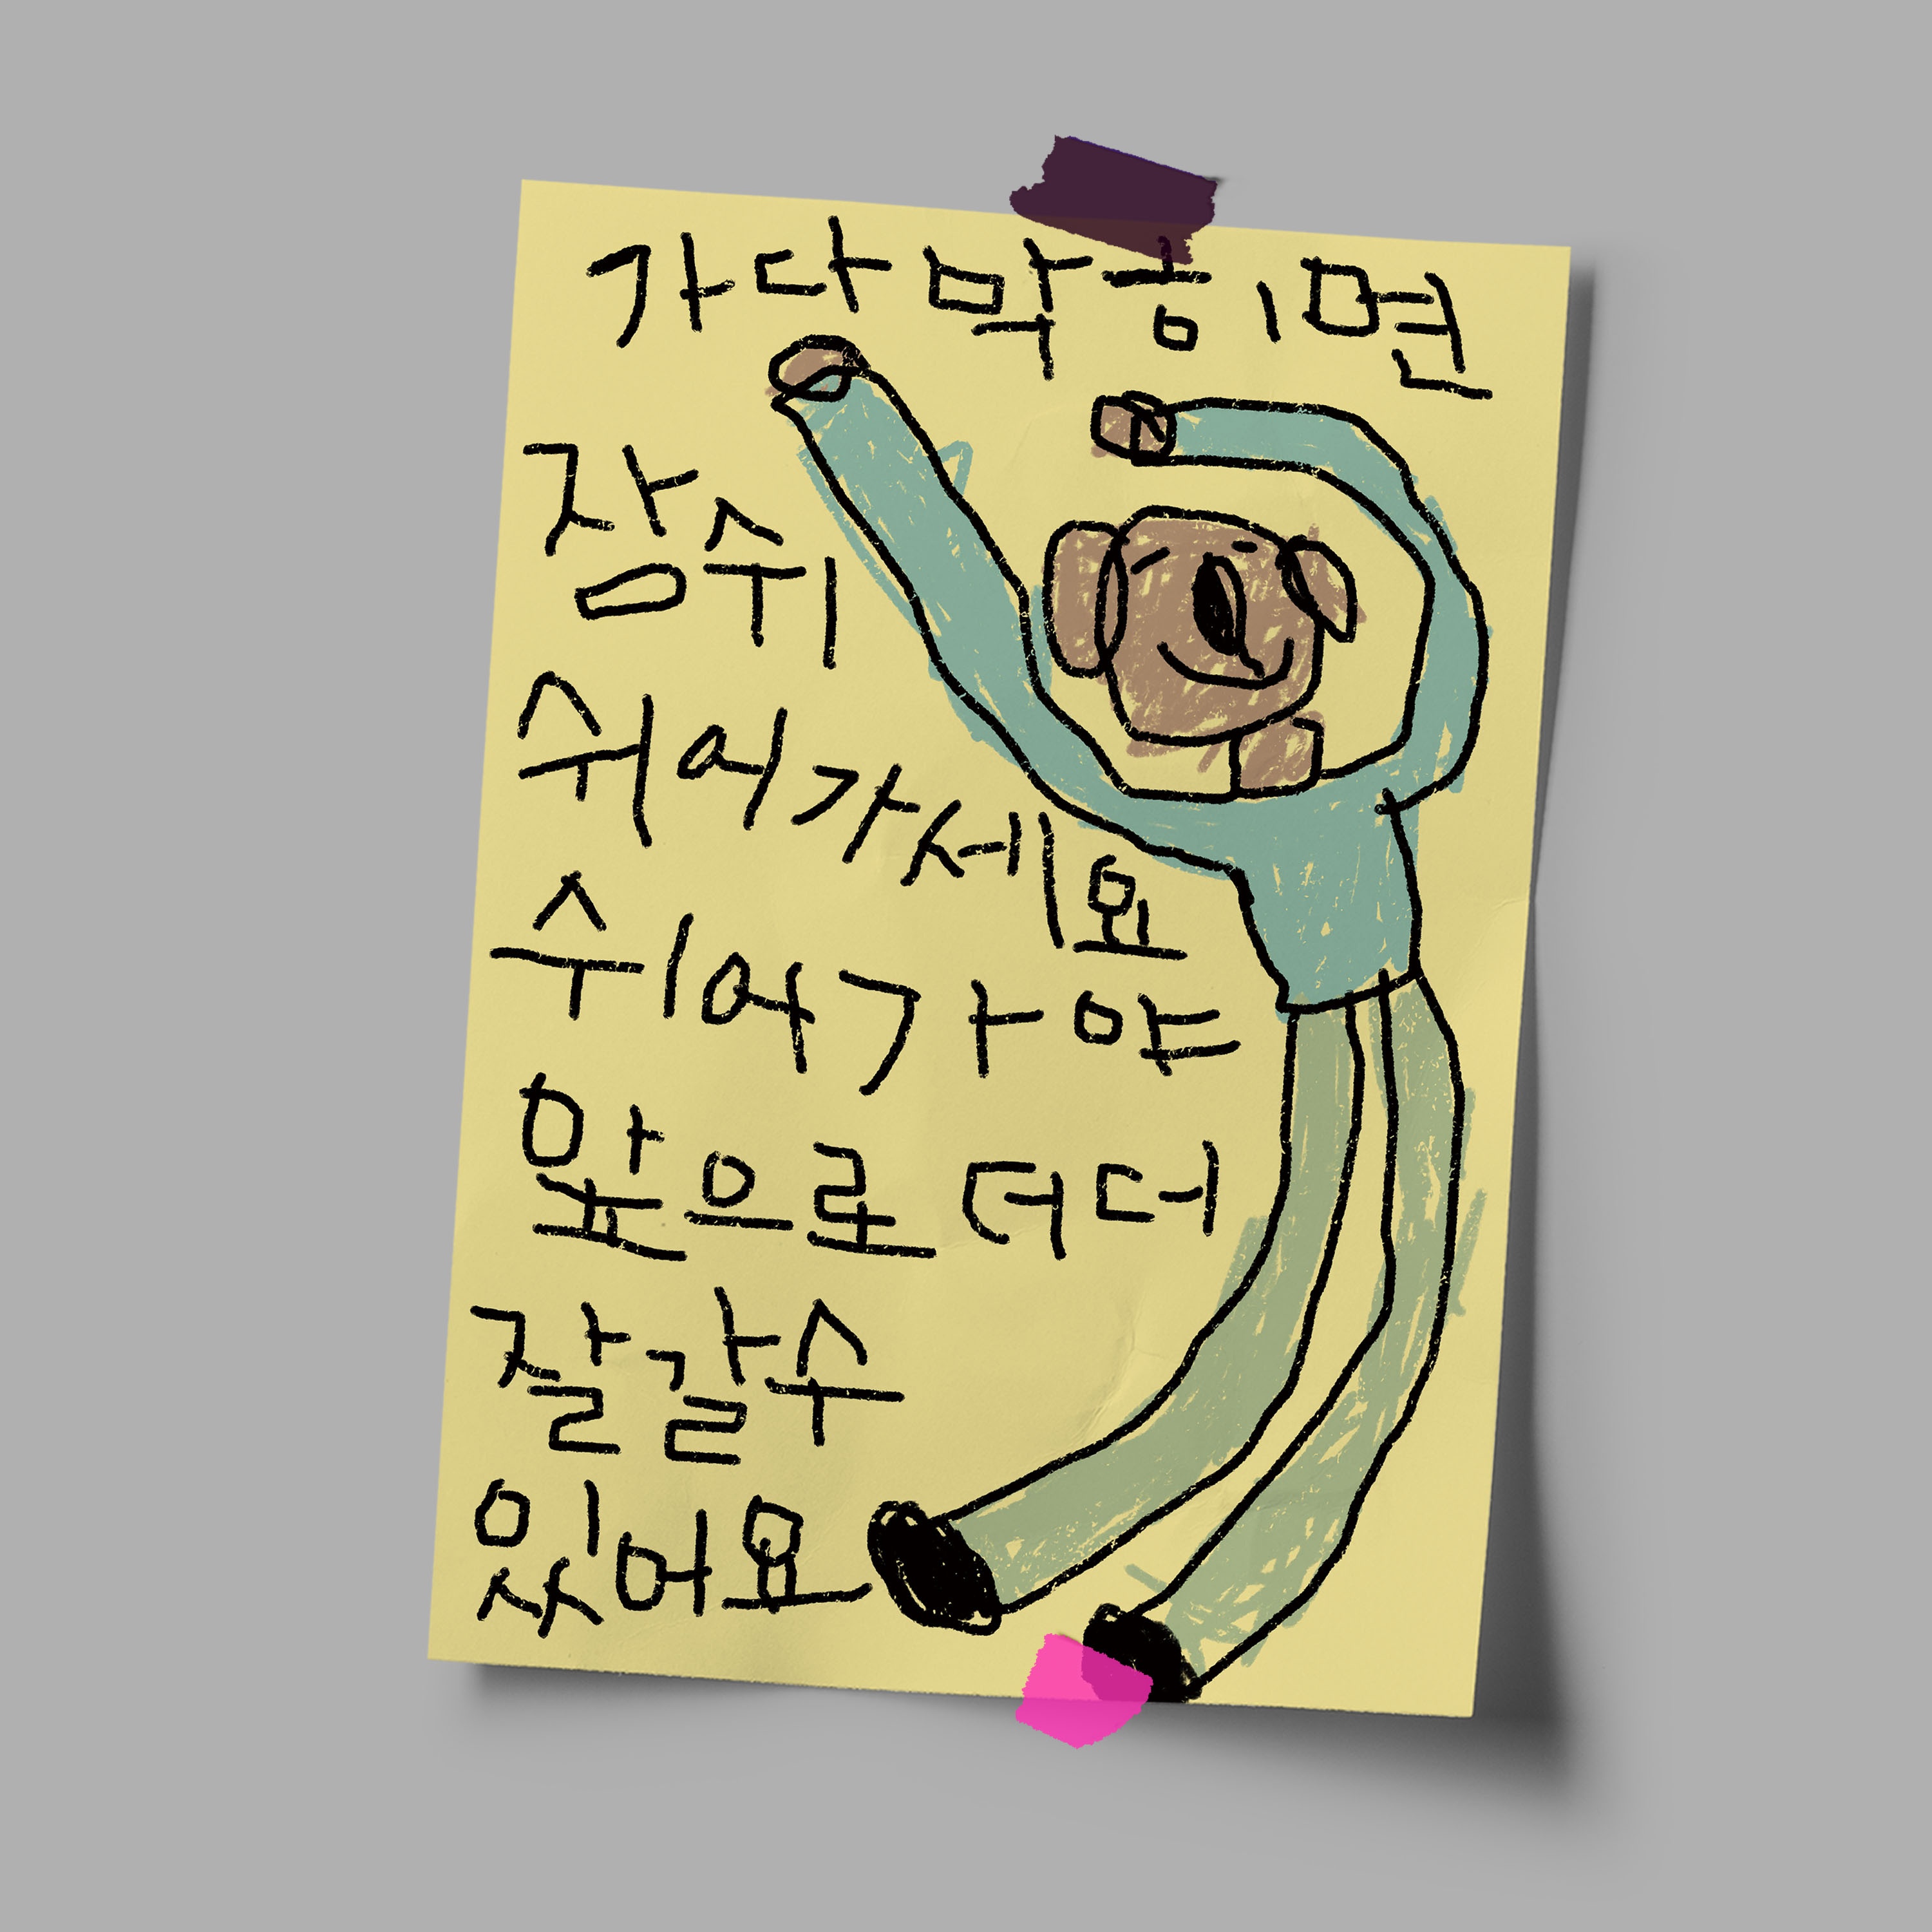 가다 막히면
잠쉬
쉬어가세요
쉬어가야
앞으로 더더
잘갈수
있어요